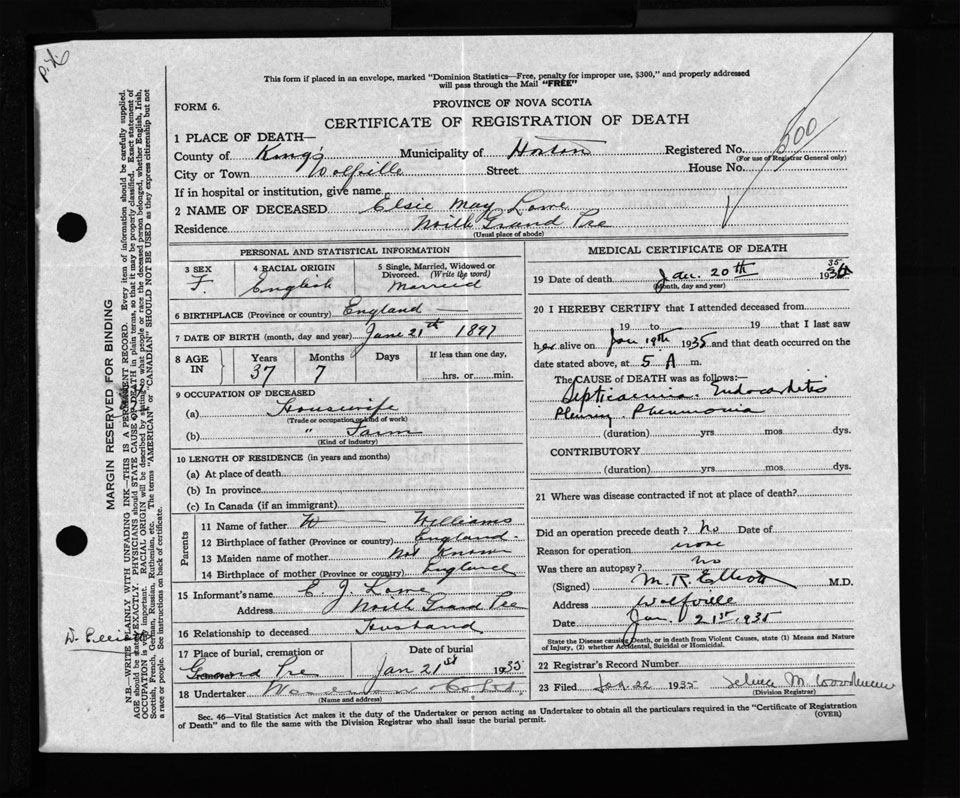 This form if placed in an envelope, marked "Dominion Statistics—Free, penalty for improper use, $300," and properly addressed
will pass through the Mail "FREE"
FORM 6.
PROVINCE OF NOVA SCOTIA
CERTIFICATE OF REGISTRATION OF DEATH
500
1 PLACE OF DEATH—
County of King's Municipality of Horton Registered No.
(For use of Registrar General only)
City or Town Wolfville Street House No.
If in hospital or institution, give name
2 NAME OF DECEASED Elsie May Lowe
Residence North Grand Pre
(Usual place of abode)
PERSONAL AND STATISTICAL INFORMATION
3 SEX F.
4 RACIAL ORIGIN English
5 Single, Married, Widowed or Divorced. (Write the word) Married
6 BIRTHPLACE (Province or country) England
7 DATE OF BIRTH (month, day and year) June 21st 1897
8 AGE IN Years 37 Months 7 Days If less than one day, hrs. or min.
9 OCCUPATION OF DECEASED
(a) Housewife
(Trade or occupation or kind of work)
(b) " Farm
(Kind of industry)
10 LENGTH OF RESIDENCE (in years and months)
(a) At place of death
(b) In province
(c) In Canada (if an immigrant)
Parents
11 Name of father W Williams
12 Birthplace of father (Province or country) England
13 Maiden name of mother Not Known
14 Birthplace of mother (Province or country) England
15 Informant's name E. J. Lowe
Address North Grand Pre
16 Relationship to deceased Husband
17 Place of burial, cremation or Grand Pre
Date of burial Jan 21st 1935
18 Undertaker
(Name and address)
MEDICAL CERTIFICATE OF DEATH
19 Date of death Jan. 20th 1935
(Month, day and year)
20 I HEREBY CERTIFY that I attended deceased from
19 to 19 that I last saw
her alive on Jan 19th 1935 and that death occurred on the
date stated above, at 5 A m.
The CAUSE OF DEATH was as follows:—
Septicaemia. Endocarditis
Pleurisy. Pheumonia
(duration) yrs. mos. dys.
CONTRIBUTORY
(duration) yrs. mos. dys.
21 Where was disease contracted if not at place of death?
Did an operation precede death? No Date of
Reason for operation none
Was there an autopsy? No
(Signed) M. R. Elliott M.D.
Address Wolfville
Date Jan. 21st. 1935
State the Disease causing Death, or in death from Violent Causes, state (1) Means and Nature
of Injury, (2) whether Accidental, Suicidal or Homicidal.
22 Registrar's Record Number
23 Filed Jan. 22 1935
(Division Registrar)
Sec. 46—Vital Statistics Act makes it the duty of the Undertaker or person acting as Undertaker to obtain all the particulars required in the "Certificate of Registration
of Death" and to file the same with the Division Registrar who shall issue the burial permit.
(OVER)
MARGIN RESERVED FOR BINDING
N.B.—WRITE PLAINLY WITH UNFADING INK—THIS IS A PERMANENT RECORD. Every item of information should be carefully supplied.
AGE should be stated EXACTLY. PHYSICIANS should STATE CAUSE OF DEATH in plain terms, so that it may be properly classified. Exact statement of
OCCUPATION is very important. RACIAL ORIGIN will be described by stating to what people or race the deceased person belonged, whether English, Irish,
Scottish, French, German, Russian, Ruthenian, etc. The terms "AMERICAN" or "CANADIAN" SHOULD NOT BE USED as they express citizenship but not
a race or people. See instructions on back of certificate.